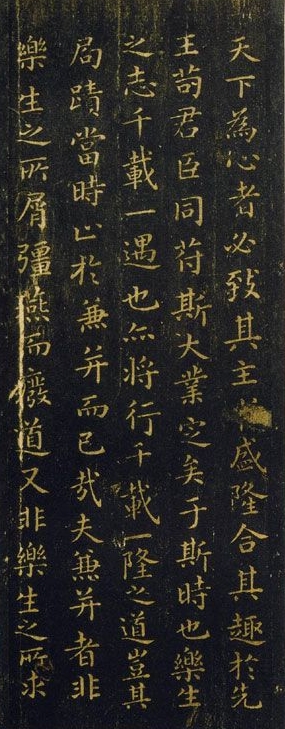 天下為心者必致其主於盛隆合其趣於先
王苟君臣同苻斯大業定矣于斯時也樂生
之志千載一遇也亦将行千載一隆之道豈其
局蹟當時止於兼并而已哉夫兼并者非
樂生之所屑彊燕而廢道又非樂生之所求